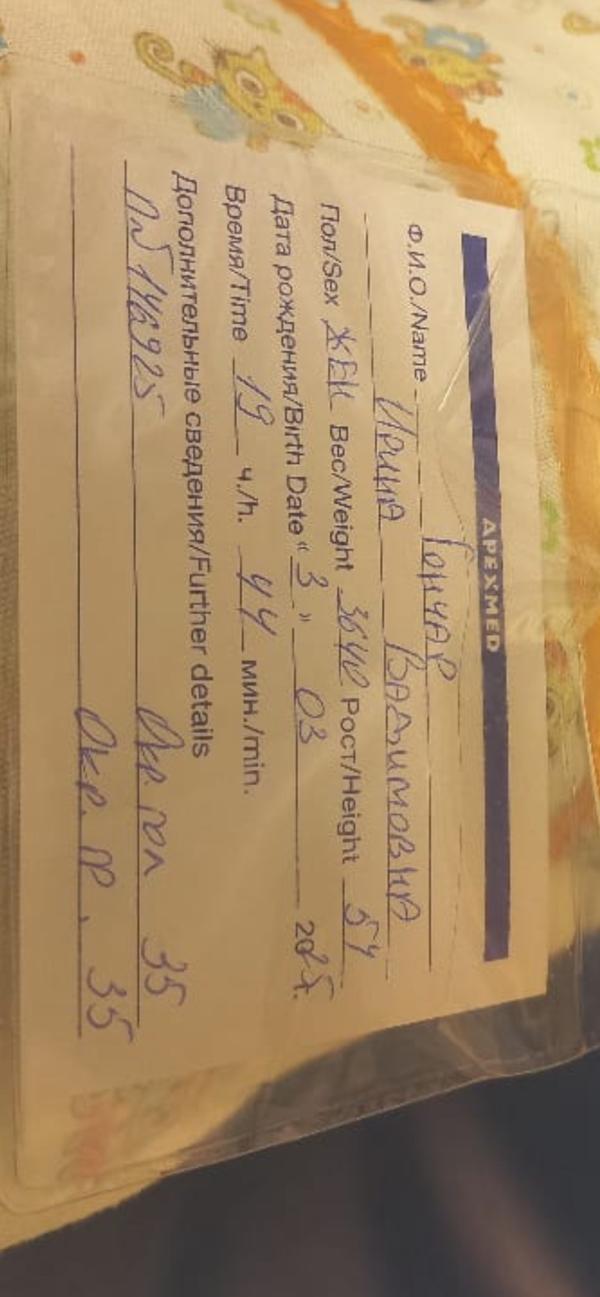 APEXMED
Ф.И.О./Name Гончар
Ирина Вадимовна
Пол/Sex ЖЕН Вес/Weight 3640 Рост/Height 54
Дата рождения/Birth Date "3" 03 2025г.
Время/Time 19 ч./h. 44 мин./min.
Дополнительные сведения/Further details
Окр. гол 35
№146925
Окр. гр. 35